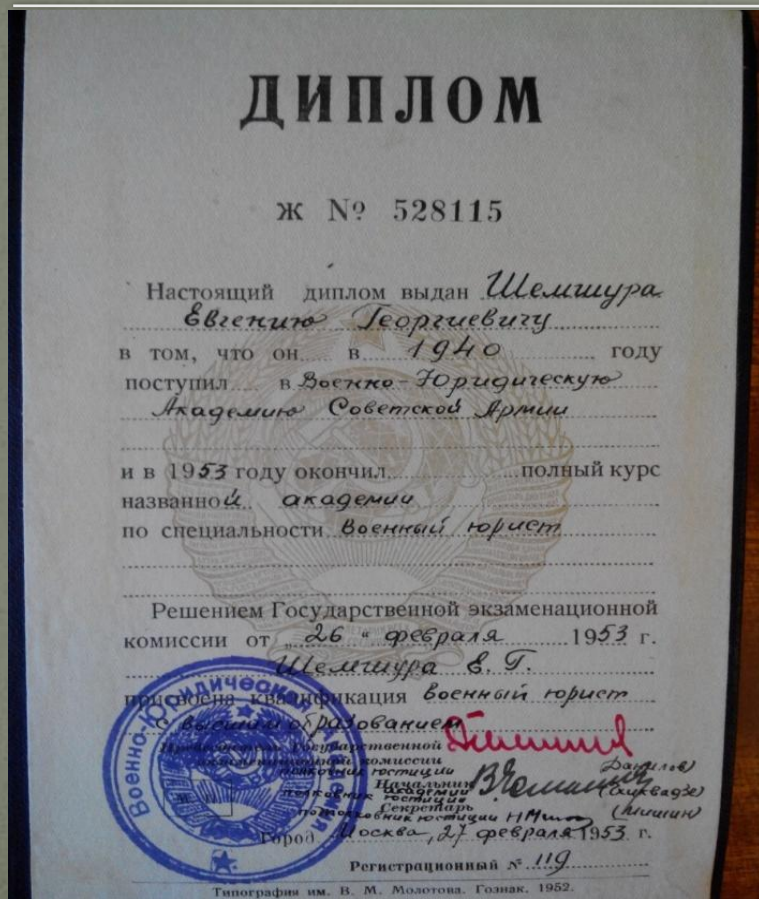 ДИПЛОМ
Ж № 528115
Настоящий диплом выдан Шемшура
Евгению Георгиевичу
в том, что он в 1940 году
поступил в Военно-Юридическую
Академию Советской Армии
и в 1953 году окончил полный курс
названной академии
по специальности военный юрист
Решением Государственной экзаменационной
комиссии от „26“ февраля 1953 г.
Шемшура Е. Г.
присвоена квалификация военный юрист
с высшим образованием
Председатель Государственной
экзаменационной комиссии
полковник юстиции (Данилов)
Начальник академии
полковник юстиции
Секретарь
подполковник юстиции (Мишин)
Город Москва, 27 февраля 1953 г.
Регистрационный № 119
Типография им. В. М. Молотова. Гознак. 1952.
Военно-Юридическая